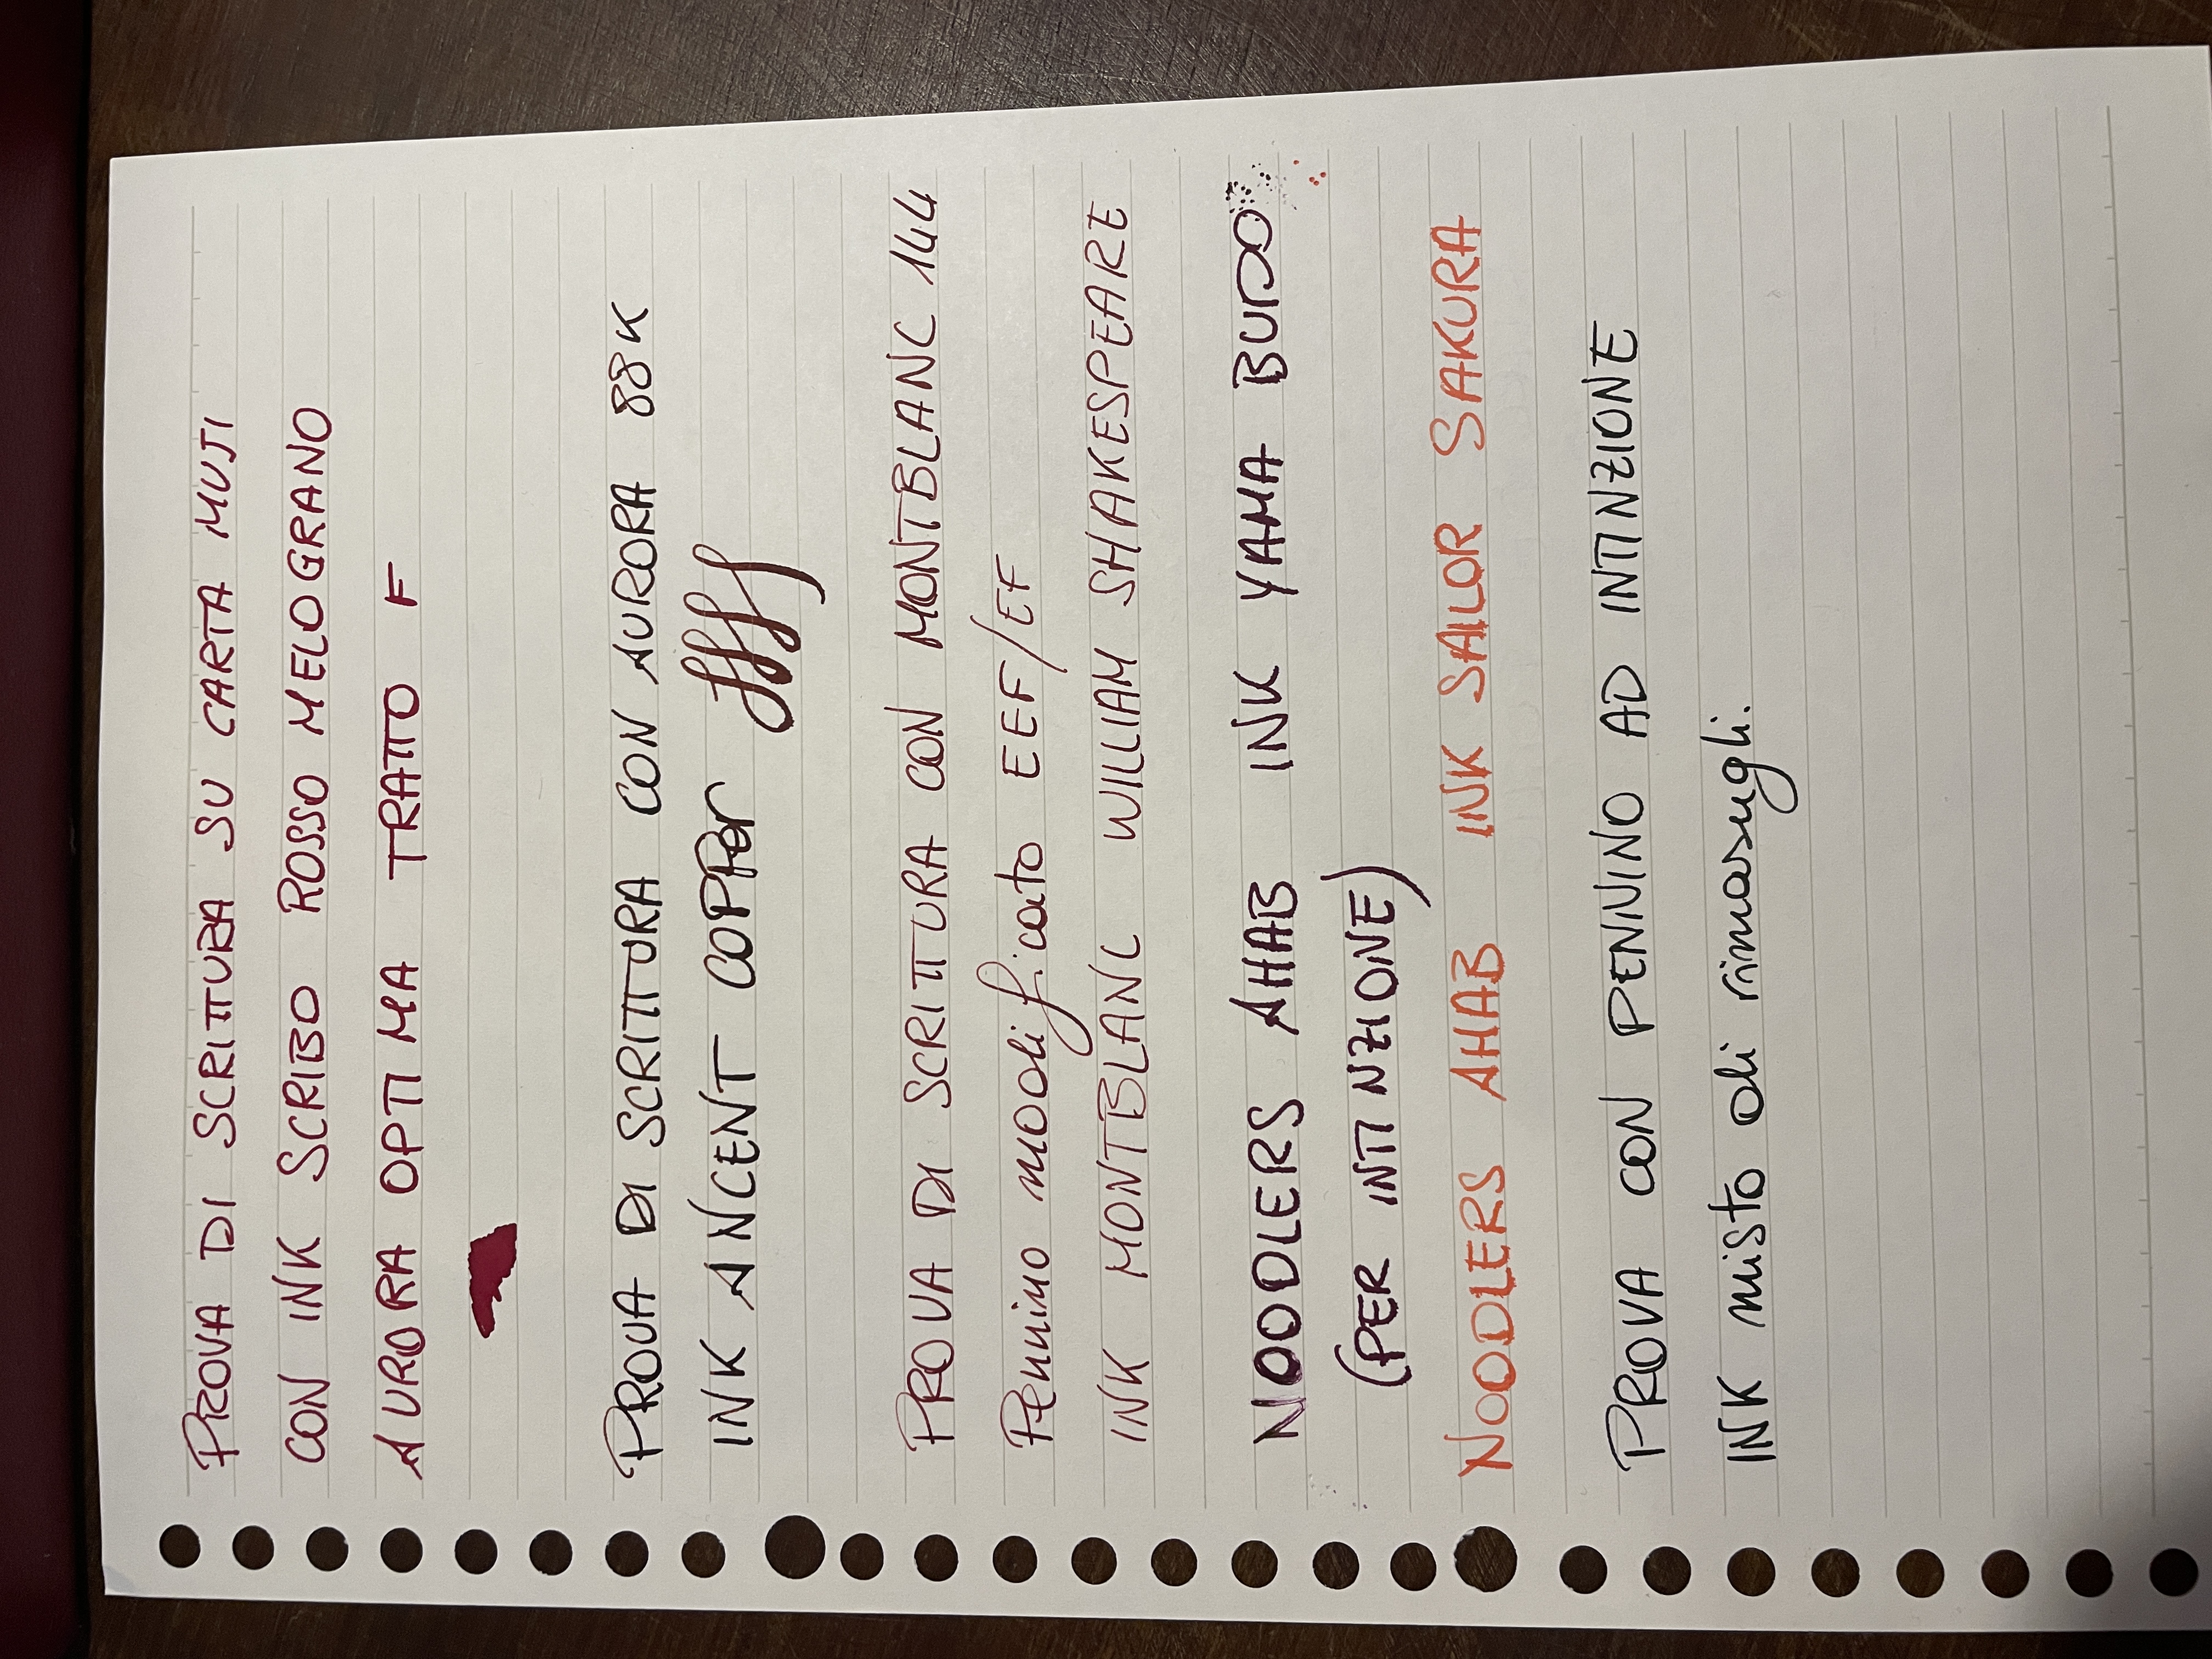 PROVA DI SCRITTURA SU CARTA MUJI
CON INK SCRIBO ROSSO MELOGRANO
AURORA OPTIMA TRATTO F
PROVA DI SCRITTURA CON AURORA 88K
INK ANCENT COPPer ffff
PROVA DI SCRITTURA CON MONTBLANC 144
Pennino modificato EEF/EF
INK MONTBLANC WILLIAM SHAKESPEARE
NOODLERS AHAB INK YAMA BUDO
(PER INTINZIONE)
NOODLERS AHAB INK SAILOR SAKURA
PROVA CON PENNINO AD INTINZIONE
INK misto di rimasugli.